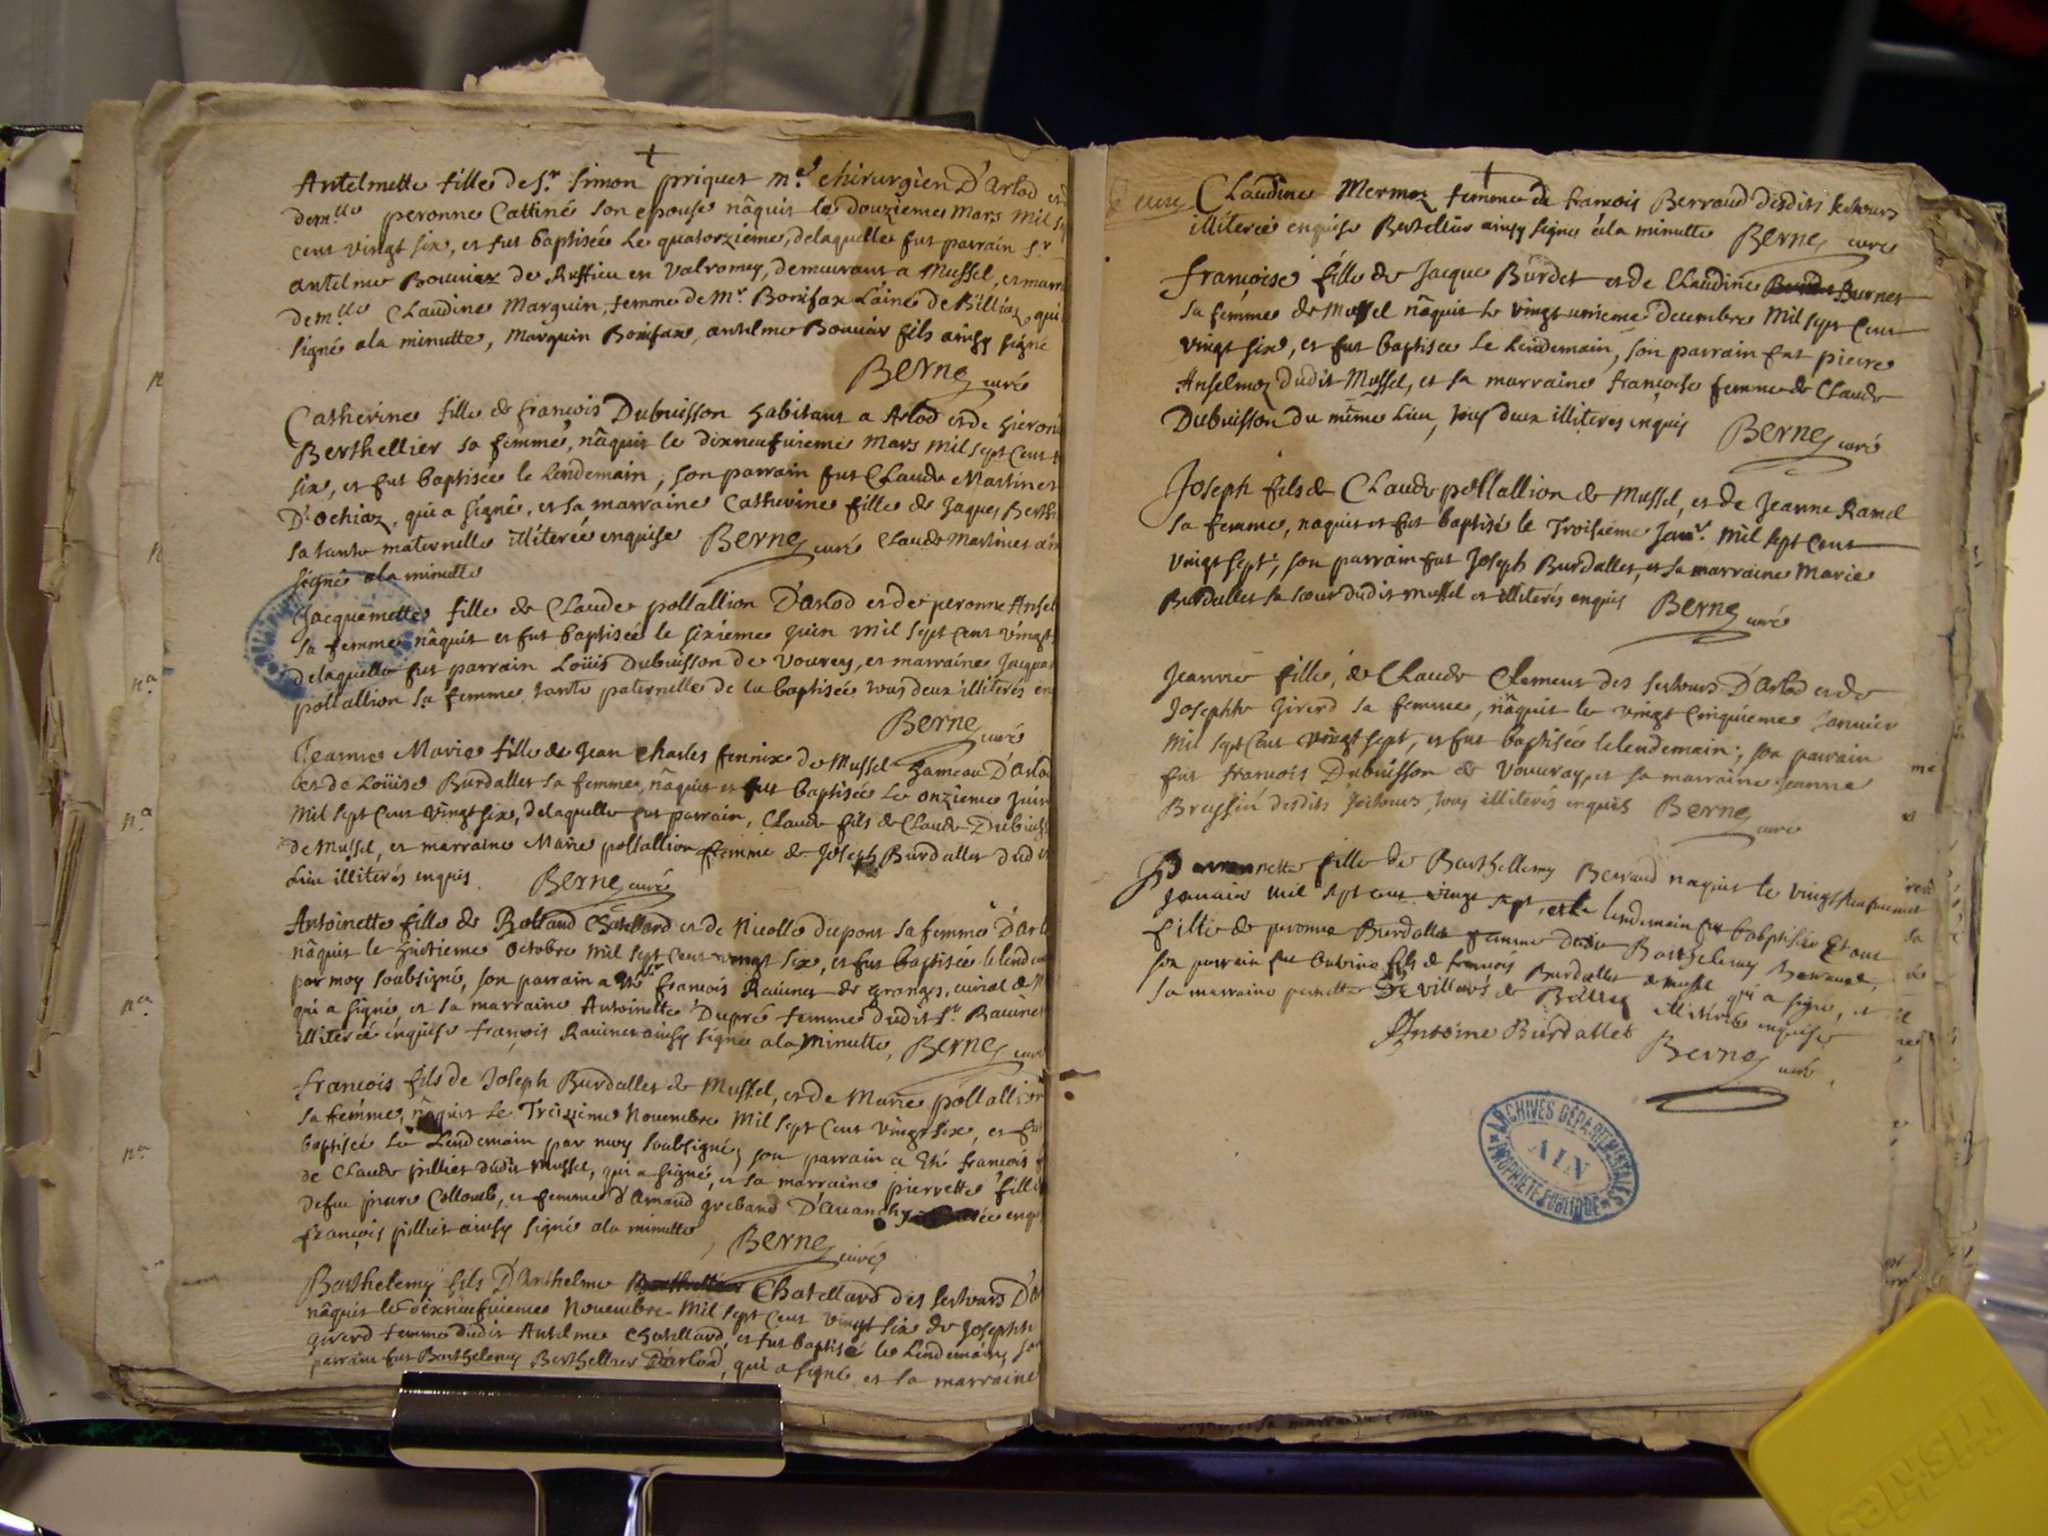 Antelmette fille de Sr. Simon priquet me. chirurgien D'Arlod et
demlle peronne Cattiné son epouse nâquit le douzieme Mars Mil
cent vingt six, et fut baptisée le quatorzieme, delaquelle fut parrain Sr
antelme Bouvier de Ruffieu en Valromey, demeurant a Mussel, et marr
demlle Claudine Marquin, femme de Mr. Bonifax L'ainé de Billiaz, qui
signé a la minutte, Marquin Bonifax, antelme Bouvier fils ainsy signé
Berne curé
Catherine fille de françois Dubuisson habitant a Arlod et de hieroni
Berthellier sa femme, nâquit le dixneufvieme Mars Mil sept Cent
six, et fut baptisée le Lendemain, son parrain fut Claude Martinet
D'ochiaz, qui a signé, et sa marraine Catherine fille de Jaques Berth
sa tante maternelle illiterée enquise Berne curé Claude Martinet ain
signé a la minutte
Jacquemette fille de Claude pollallion D'arlod et de peronne Ansel
sa femme nâquit et fut baptisée le sixieme Juin Mil sept Cent vingt
delaquelle fut parrain Loüis Dubuisson de Vouvey, et marraine Jacqu
pollallion sa femme tante paternelle de la baptisée tous deux illiterés en
Berne curé
Jeanne Marie fille de Jean Charles fennix de Mussel hameau D'arlo
et de Loüise Burdallet sa femme, nâquit et fut baptisée le onzieme Juin
Mil sept Cent vingt six, delaquelle fut parrain, Claude fils de Claude Dubuiss
de Mussel, et marraine Marie pollallion femme de Joseph Burdallet dud
Lieu illiterés enquis Berne curé
Antoinette fille de Rolland Chatellard et de Nicolle dupont sa femme D'arlo
nâquit le huitieme octobre Mil sept Cent vingt six, et fut baptisée le lend
par moy soubsigné, son parrain a françois Ravinet de granges,
qui a signé, et sa marraine Antoinette Dupré femme dudit Sr. Ravinet
illiterée enquise françois Ravinet ainsy signé a la Minutte, Berne curé
françois fils de Joseph Burdallet de Mussel, et de Marie pollallion
sa femme, nâquit le Treizieme Novembre Mil sept Cent vingt six, et fut
baptisée le Lendemain par moy soubsigné, son parrain a Eté françois
de Claude pillier dudit Mussel, qui a signé, et sa marraine pierrette fille
defeu pierre Collomb, et femme d'Arnaud greband D'avanchy enqu
françois pillier ainsy signé a la minutte Berne curé
Barthelemy fils D'Anthelme Chatellard des Sertours D'a
nâquit le dixneufvieme Novembre Mil sept Cent vingt six de Josephte
Girerd femme dudit Antelme Chatellard, et fut baptisé le Lendemain, son
parrain fut Barthelemy Berthellier D'arlod, qui a signé et sa marraine
Claudine Mermoz femme de françois Berraud desdits sertours
illiterée enquise Berthellier ainsy signé a la minutte Berne curé
françoise fille de Jacque Burdet et de Claudine Burnet
sa femme de Mussel nâquit le vingt unieme decembre Mil sept Cent
vingt six, et fut baptisée le Lendemain, son parrain fut pierre
Anselmoz dudit Mussel, et sa marraine françoise femme de Claude
Dubuisson du même Lieu, tous deux illiterés enquis Berne curé
Joseph fils de Claude pollallion de Mussel, et de Jeanne Ramel
sa femme, naquit et fut baptisé le Troisieme Janvr. Mil sept Cent
vingt sept, son parrain fut Joseph Burdallet, et sa marraine Marie
Burdallet sa sœur dudit Mussel et illiterés enquis Berne curé
Jeanne fille, de Claude Clement des sertours D'Arlod et de
Josephte Girerd sa femme, nâquit le vingt Cinquieme Janvier
Mil sept Cent vingt sept, et fut baptisée le lendemain, son parain
fut françois Dubuisson de Vouvray, et sa marraine Jeanne
Brassin desdits sertours, tous illiterés enquis Berne curé
fille de Barthellemy Berraud naquit le vingt neufviemes
Janvier mil sept cent vingt sept, et le lendemain fut babptisée Et ont
fille de peronne Burdallet femme dudit Barthelemy Berraud,
son parrain fut Antoine fils de françois Burdallet de mussel qui a signé, et
sa marraine pernette De villars de Billiaz illiterée enquise
Antoine Burdallet Berne curé
ARCHIVES DÉPARTEMENTALES
AIN
PROPRIÉTÉ PUBLIQUE